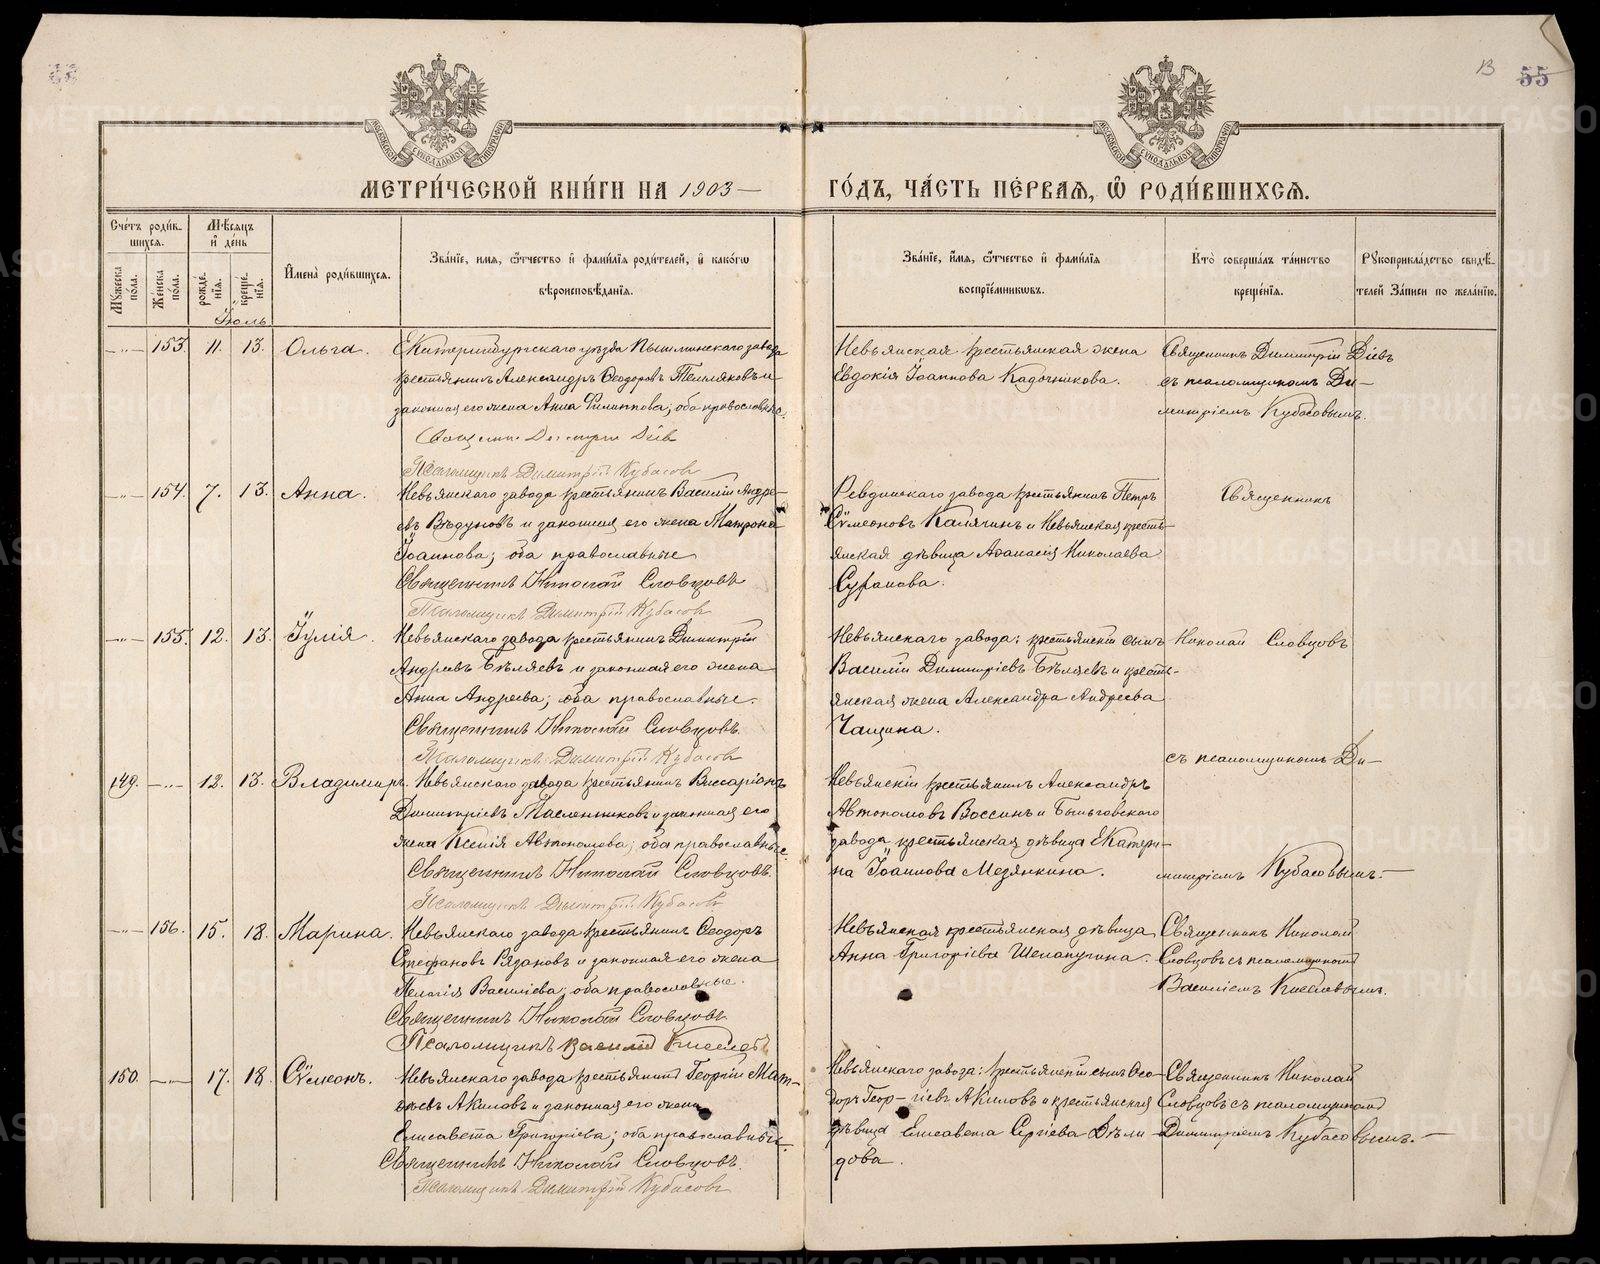 55
МЕТРИ́ЧЕСКОЙ КНИ́ГИ НА 1903 —
ГО́ДЪ, ЧА́СТЬ ПЕ́РВАЯ, Ѡ҆ РОДИ́ВШИХСѦ.
Сче́тъ роди́в-
шихся.
Мѣ́сяцъ
и҆ де́нь
И҆мена̀ роди́вшихся.
Зва́нїе, имя, ѻ҆́тчество и҆ фами́лїя роди́телей, и҆ како́гѡ
вѣроисповѣ́данїя.
Мꙋ́жеска по́ла.
Же́нска по́ла.
рожде́нїя.
креще́нїя.
Іюль
Зва́нїе, и҆́мя, ѻ҆́тчество и҆ фами́лїя
воспрїе́мникѡвъ.
Кто̀ соверша́лъ та́инство
креще́нїя.
Рꙋкоприкла́дство свидѣ́-
телей За́писи по жела́нїю.
—"— 153. 11. 13. Ольга.
Екатеринбургскаго уѣзда Пышминскаго завода
крестьянинъ Александръ Ѳеодоровъ Тепляковъ и
законная его жена Анна Филиппова; оба православные.
Священникъ Димитрій Діевъ
Псаломщикъ Димитрій Кубасовъ
Невьянская крестьянская жена
Евдокія Іоаннова Кадочникова.
Священникъ Димитрій Діевъ
съ псаломщикомъ Ди-
митріемъ Кубасовымъ.
—"— 154. 7. 13. Анна.
Невьянскаго завода крестьянинъ Василій Андре-
евъ Вѣдуновъ и законная его жена Матрона
Іоаннова; оба православные
Священникъ Николай Словцовъ
Псаломщикъ Димитрій Кубасовъ
Ревдинскаго завода крестьянинъ Петръ
Сѵмеоновъ Калягинъ и Невьянская кресть-
янская дѣвица Аѳанасія Николаева
Суханова.
Священникъ
—"— 155. 12. 13. Іулія.
Невьянскаго завода крестьянинъ Димитрій
Андреевъ Бѣляевъ и законная его жена
Анна Андреева; оба православные.
Священникъ Николай Словцовъ.
Псаломщикъ Димитрій Кубасовъ
Невьянскаго завода: крестьянскій сынъ
Василій Димитріевъ Бѣляевъ и кресть-
янская жена Александра Андреева
Чащина.
Николай Словцовъ
съ псаломщикомъ Ди-
149. —"— 12. 13. Владимиръ.
Невьянскаго завода крестьянинъ Виссаріонъ
Димитріевъ Масленниковъ и законная его
жена Ксенія Автономова; оба православные.
Священникъ Николай Словцовъ.
Псаломщикъ Димитрій Кубасовъ
Невьянскій крестьянинъ Александръ
Автономовъ Воссинъ и Быньговскаго
завода крестьянская дѣвица Екатери-
на Іоаннова Мезянкина.
митріемъ Кубасовымъ. —
—"— 156. 15. 18. Марина.
Невьянскаго завода крестьянинъ Ѳеодоръ
Стефановъ Рязановъ и законная его жена
Пелагія Василіева; оба православные.
Священникъ Николай Словцовъ
Псаломщикъ Василій Киселевъ
Невьянская крестьянская дѣвица
Анна Григоріева Шелапугина.
Священникъ Николай
Словцовъ съ псаломщикомъ
Василіемъ Киселевымъ.
150. —"— 17. 18. Сѵмеонъ.
Невьянскаго завода крестьянинъ Георгій Мат-
ѳеевъ Акиловъ и законная его жена
Елисавета Григоріева; оба православные.
Священникъ Николай Словцовъ.
Псаломщикъ Димитрій Кубасовъ
Невьянскаго завода: крестьянскій сынъ Ѳео-
доръ Геор-гіевъ Акиловъ и крестьянская
дѣвица Елисавета Сергіева Дѣли-
дова.
Священникъ Николай
Словцовъ съ псаломщикомъ
Димитріемъ Кубасовымъ. —